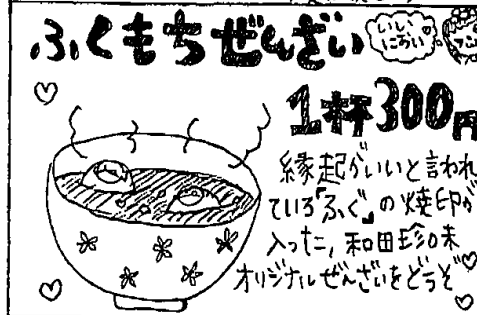 ふくもちぜんざい
いい
におい
1杯300円
縁起がいいと言われ
ている「ふぐ」の焼印が
入った、和田珍味
オリジナルぜんざいをどうぞ